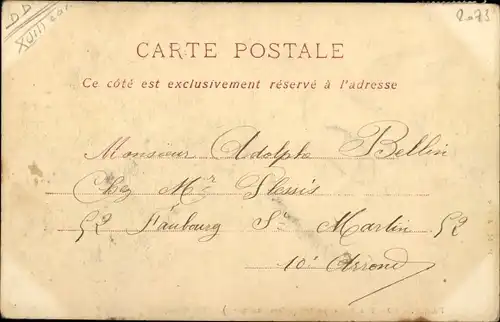 DD
XVIII
2.073
CARTE POSTALE
Ce côté est exclusivement réservé à l'adresse
Monsieur Adolphe Bellin
Chez Mr Plessis
52 Faubourg St Martin 52
10e Arrond